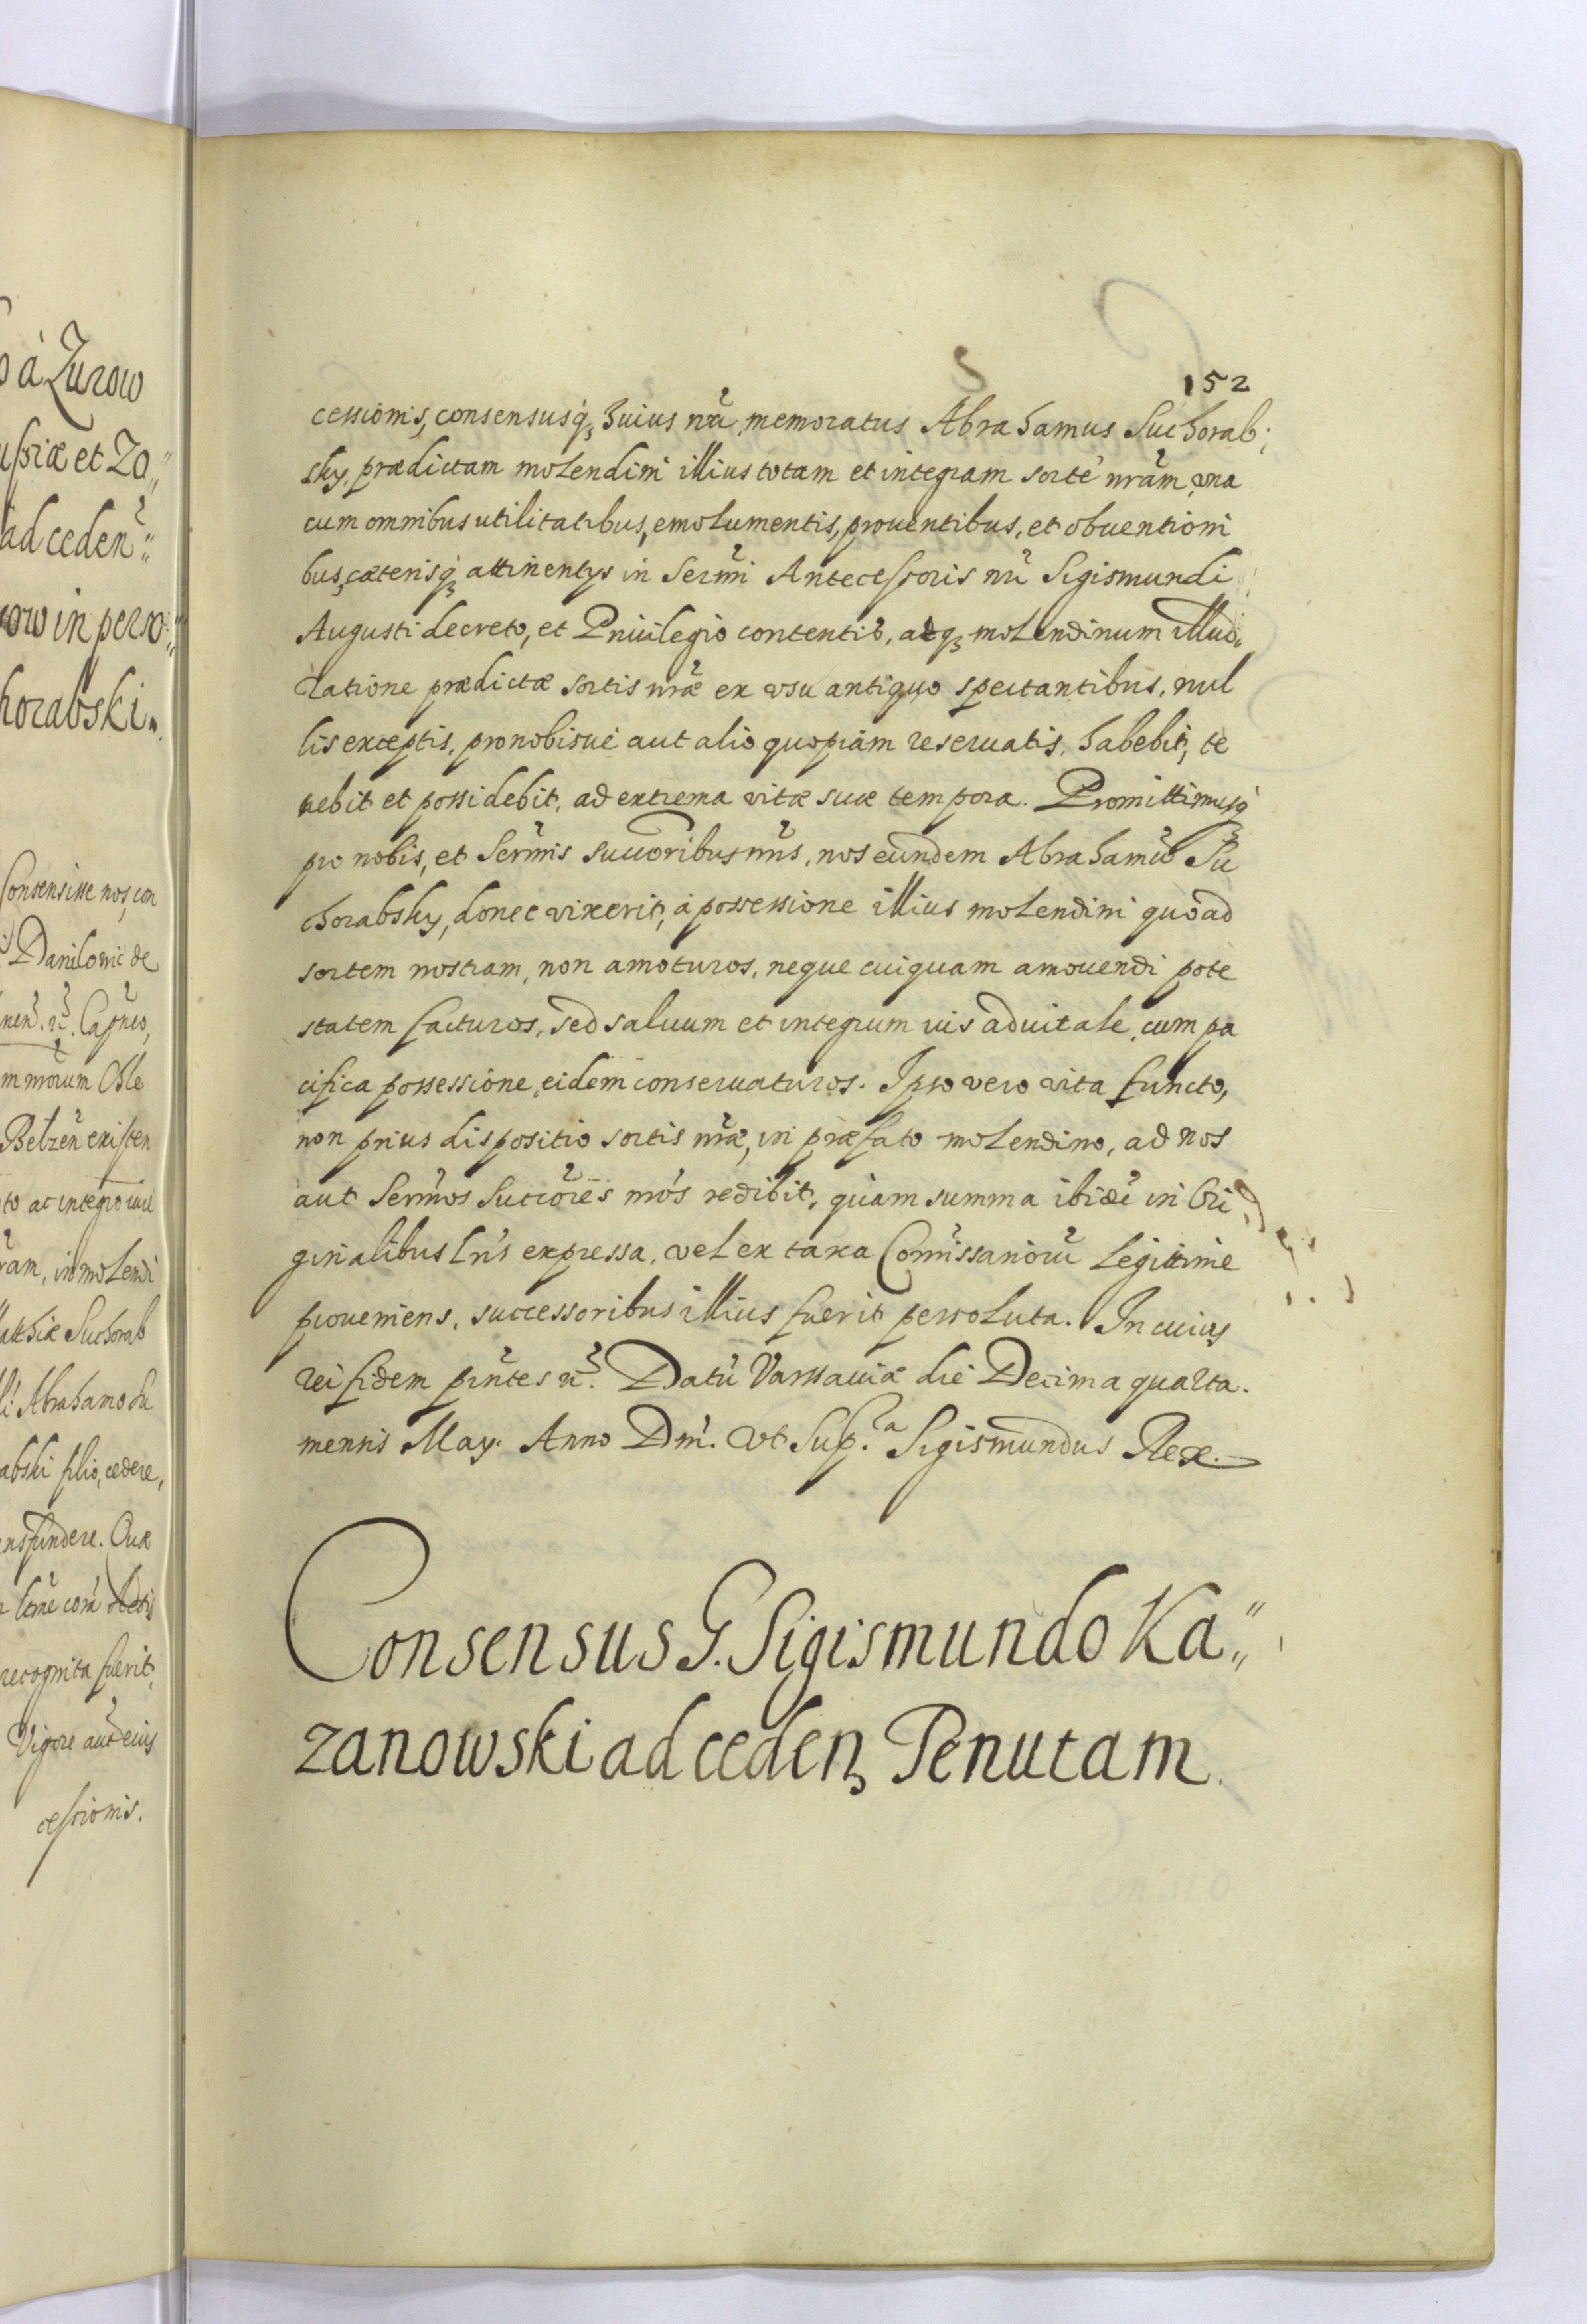 o à Zurow
usiæ et Zo„
ad ceden̄„
row in perso„
horabski.
Consensisse nos, con
Danilowic de
nen̄. r̄. Capn̄eo,
m mõrum Oble
Belzen̄ existen
to ac integro iure
ram, in molendi
atthiæ Suchorab
li Abrahamo Su
abski filio, cedere,
ansfundere. Quæ
recognita fuerit,
Vigore aut̄ eius
cessionis.
152
cessionis, consensusq̧ huius nr̄i memoratus Abrahamus Suchorab:
sky, prædictam molendini illius totam et integram sortē nr̄am, vna
cum omnibus utilitatibus, emolumentis, prouentibus, et obuentioni
bus, cæterisq̧ attinentys in Serm̄i Antecessoris nr̄i Sigismundi
Augusti decreto, et Priuilegio contentis, adq̧ molendinum illud„
ratione prædictæ sortis nr̄æ ex vsu antiquo spectantibus, nul
lis exceptis, pro nobisué aut alio quopiam reseruatis, habebit, te
nebit et possidebit, ad extrema vitæ suæ tempora. Promittimusq̧
pro nobis, et Serm̄is succoribus nr̄is, nos eundem Abrahamū Su
chorabsky, donec vixerit, à possessione illius molendini quoad
sortem nostram, non amoturos, neque cuiquam amouendi pote
statem facturos, sed saluum et integrum ius aduitale, cum pa
cifica possessione, eidem conseruaturos. Ipso vero vita functo,
non prius dispositio sortis nr̄æ, in præfato molendino, ad nos
aut Serm̄os Succōres nr̄os redibit, quam summa ibidē in Ori
ginalibus Lr̄is expressa, vel ex taxa Com̄issariorū legitime
proueniens, successoribus illius fuerit persoluta. In cuius
rei fidem pn̄tes r̄. Datū Varssauiæ die Decima quarta.
mensis May. Anno Dn̄i. Vt Supᵃ. Sigismundus Rex.
Consensus G. Sigismundo Ka„
zanowski ad ceden̨ Tenutam